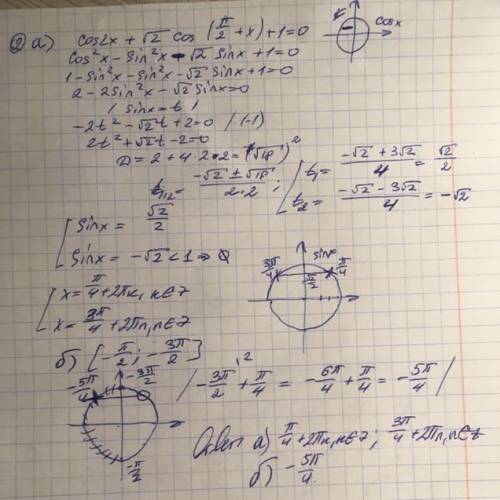 ② а) cos2x + √2 cos (π/2 + x) + 1 = 0
cosx
cos²x - sin²x - √2 sinx + 1 = 0
1 - sin²x - sin²x - √2 sinx + 1 = 0
2 - 2sin²x - √2 sinx = 0
/ sinx = t /
-2t² - √2t + 2 = 0 /(-1)
2t² + √2t - 2 = 0
D = 2 + 4·2·2 = (√18)²
t₁,₂ = (-√2 ± √18)/(2·2) ; [ t₁ = (-√2 + 3√2)/4 = √2/2
t₂ = (-√2 - 3√2)/4 = -√2
[ sinx = √2/2
sinx = -√2 < 1 ⇒ ∅
sinx
3π/4 √2/2 π/4
[ x = π/4 + 2πk, k∈Z
x = 3π/4 + 2πn, n∈Z
б) [-π/2; -3π/2]
-5π/4 -3π/2 -π/2
/ -3π/2 + π/4 = -6π/4 + π/4 = -5π/4 /
Ответ: а) π/4 + 2πk, k∈Z ; 3π/4 + 2πn, n∈Z
б) -5π/4